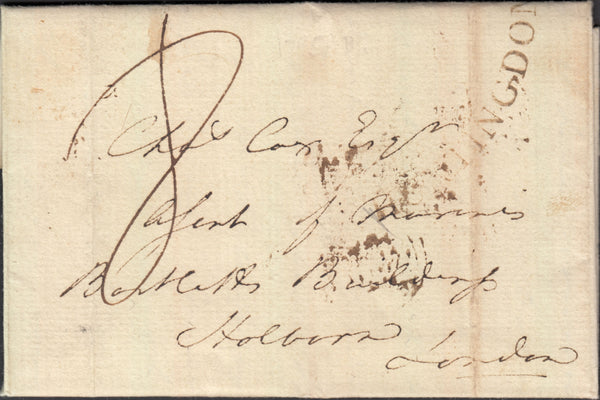 8
INGDON
Chas Cox Esqr
Agent of Marines
Bartletts Buildings
Holborn
London